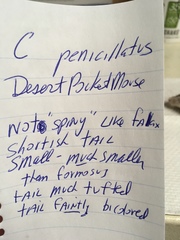 C penicillatus
Desert Pocket Mouse
Not "spiny" like fallax
Shortish tail
Small - much smaller
than formosus
tail much tufted
tail faintly bicolored